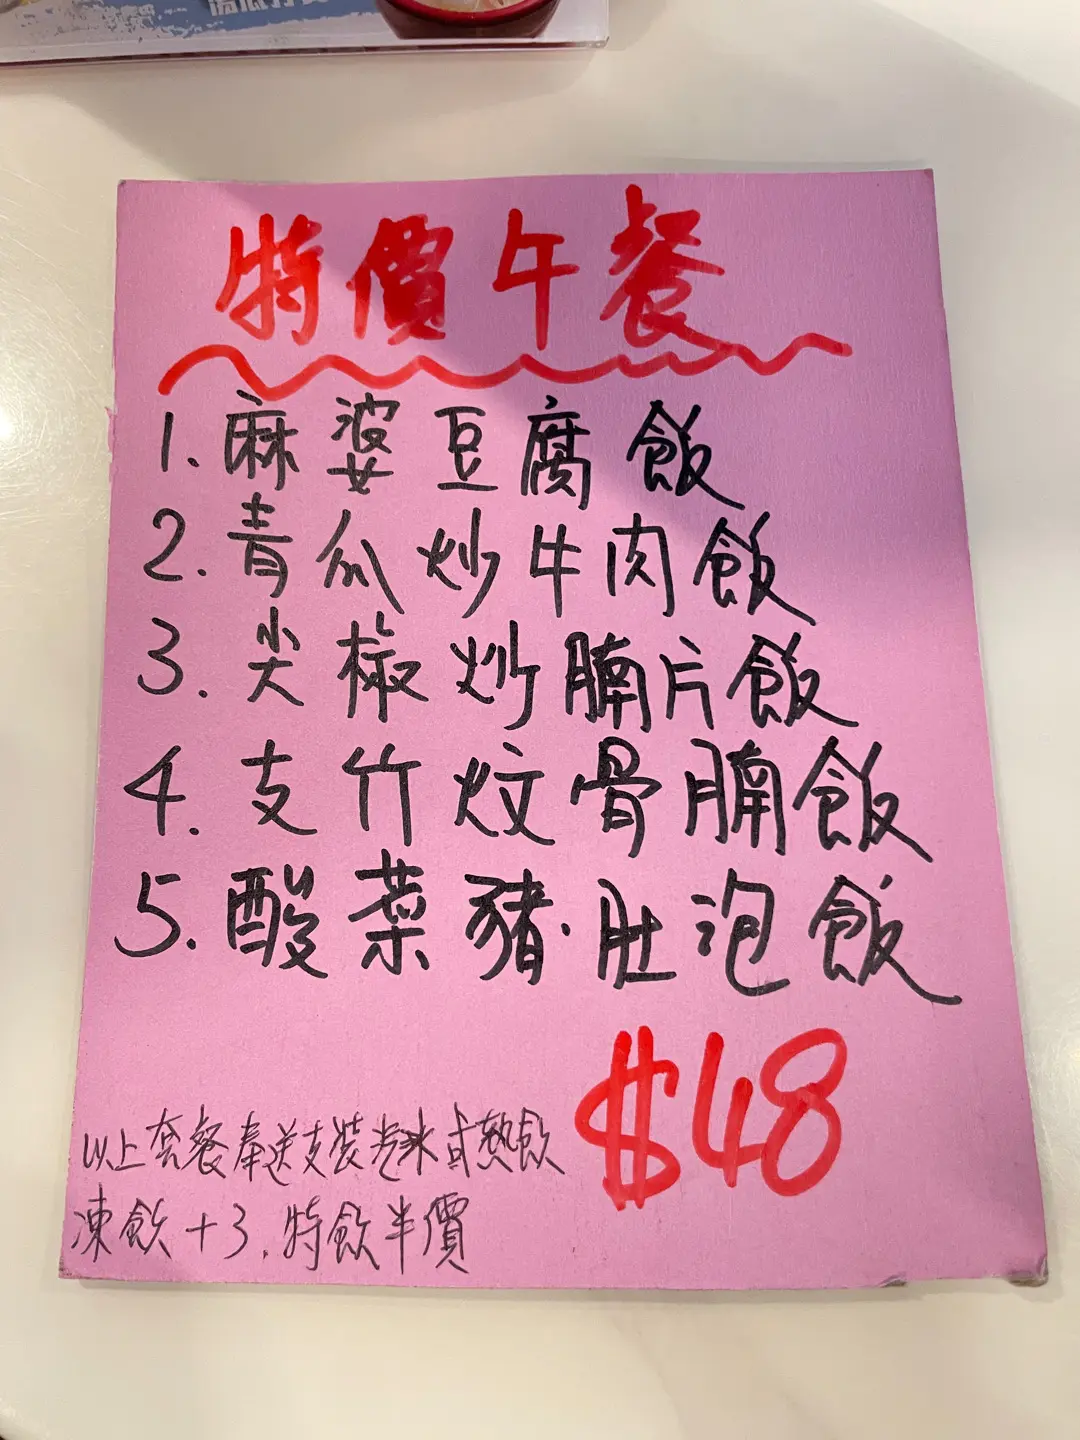 特價午餐
1. 麻婆豆腐飯
2. 青瓜炒牛肉飯
3. 尖椒炒腩片飯
4. 支竹炆骨腩飯
5. 酸菜豬肚泡飯
$48
以上套餐奉送支裝汽水或熱飲
凍飲+3. 特飲半價